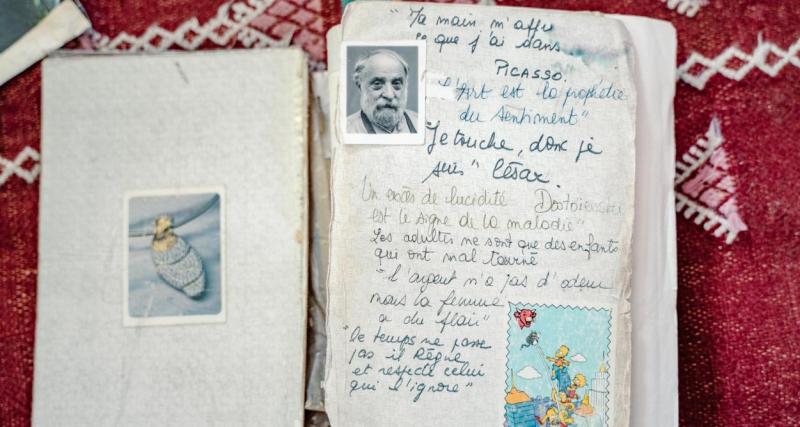 "Ta main m'
ce que j'ai dans
PICASSO.
L'Art est la prophétie
du sentiment"
"Je touche, donc je
suis" César.
Un excès de lucidité Dostoievski
est le signe de la maladie"
Les adultes ne sont que des enfants
qui ont mal tourné
"L'argent n'a pas d'odeur
mais la femme
a du flair"
"Le temps ne passe
pas il Règne
et respecte celui
qui l'ignore"